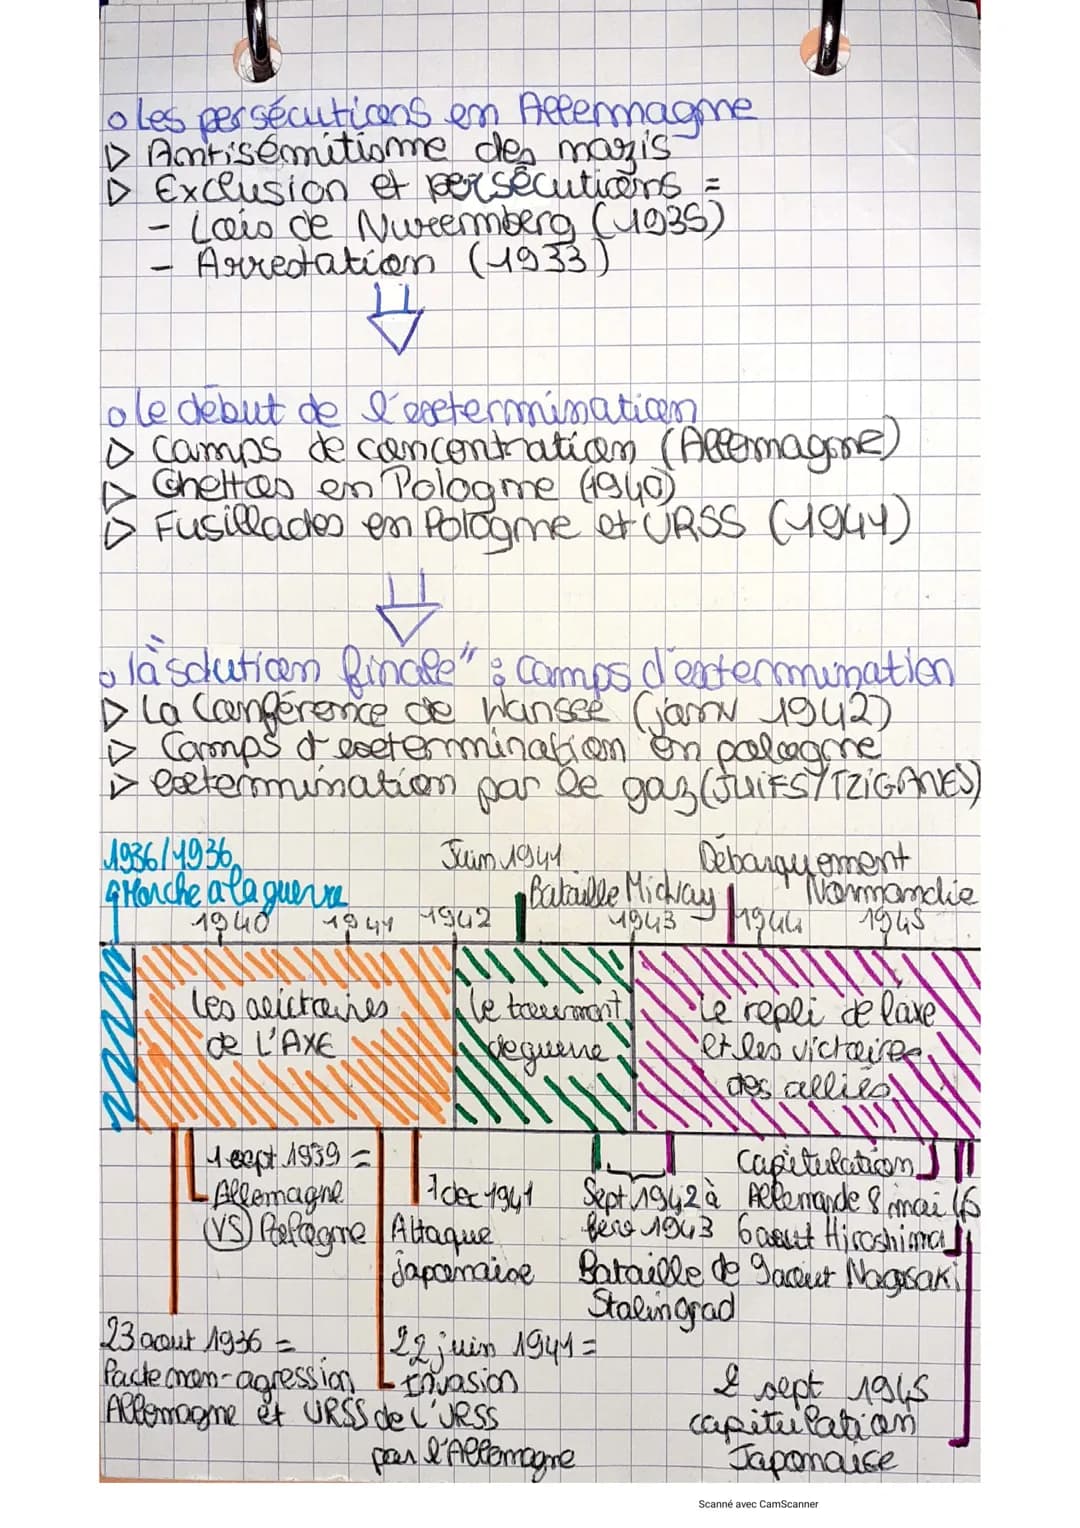 o Les persécutions en Allemagne
▷ Antisémitisme des nazis
▷ Exclusion et persécutions =
- Lois de Nuremberg (1935)
- Arrestation (1933)
o le début de l'extermination
▷ Camps de concentration (Allemagne)
▷ Ghettos en Pologne (1940)
▷ Fusillades en Pologne et URSS (1941)
o la "solution finale" : Camps d'extermination
▷ La Conférence de Wansee (janv 1942)
▷ Camps d'extermination en pologne
▷ extermination par le gaz (JUIFS/TZIGANES)
1936/1936
Marche a la guerre
Juin 1941
Bataille Midway
Débarquement
Normandie
1940 1941 1942 1943 1944 1945
les victoires
de L'AXE
Le tournant
de guerre
Le repli de l'axe
et les victoires
des alliés
1 sept 1939 =
Allemagne
VS Pologne
7 dec 1941
Attaque
japonaise
Sept 1942 à
fevr 1943
Bataille de
Stalingrad
Capitulation
Allemande 8 mai 45
6 aout Hiroshima
9 aout Nagasaki
23 aout 1936 =
Pacte non-agression
Allemagne et URSS
22 juin 1941 =
Invasion
de L'URSS
par l'Allemagne
2 sept 1945
capitulation
Japonaise
Scanné avec CamScanner